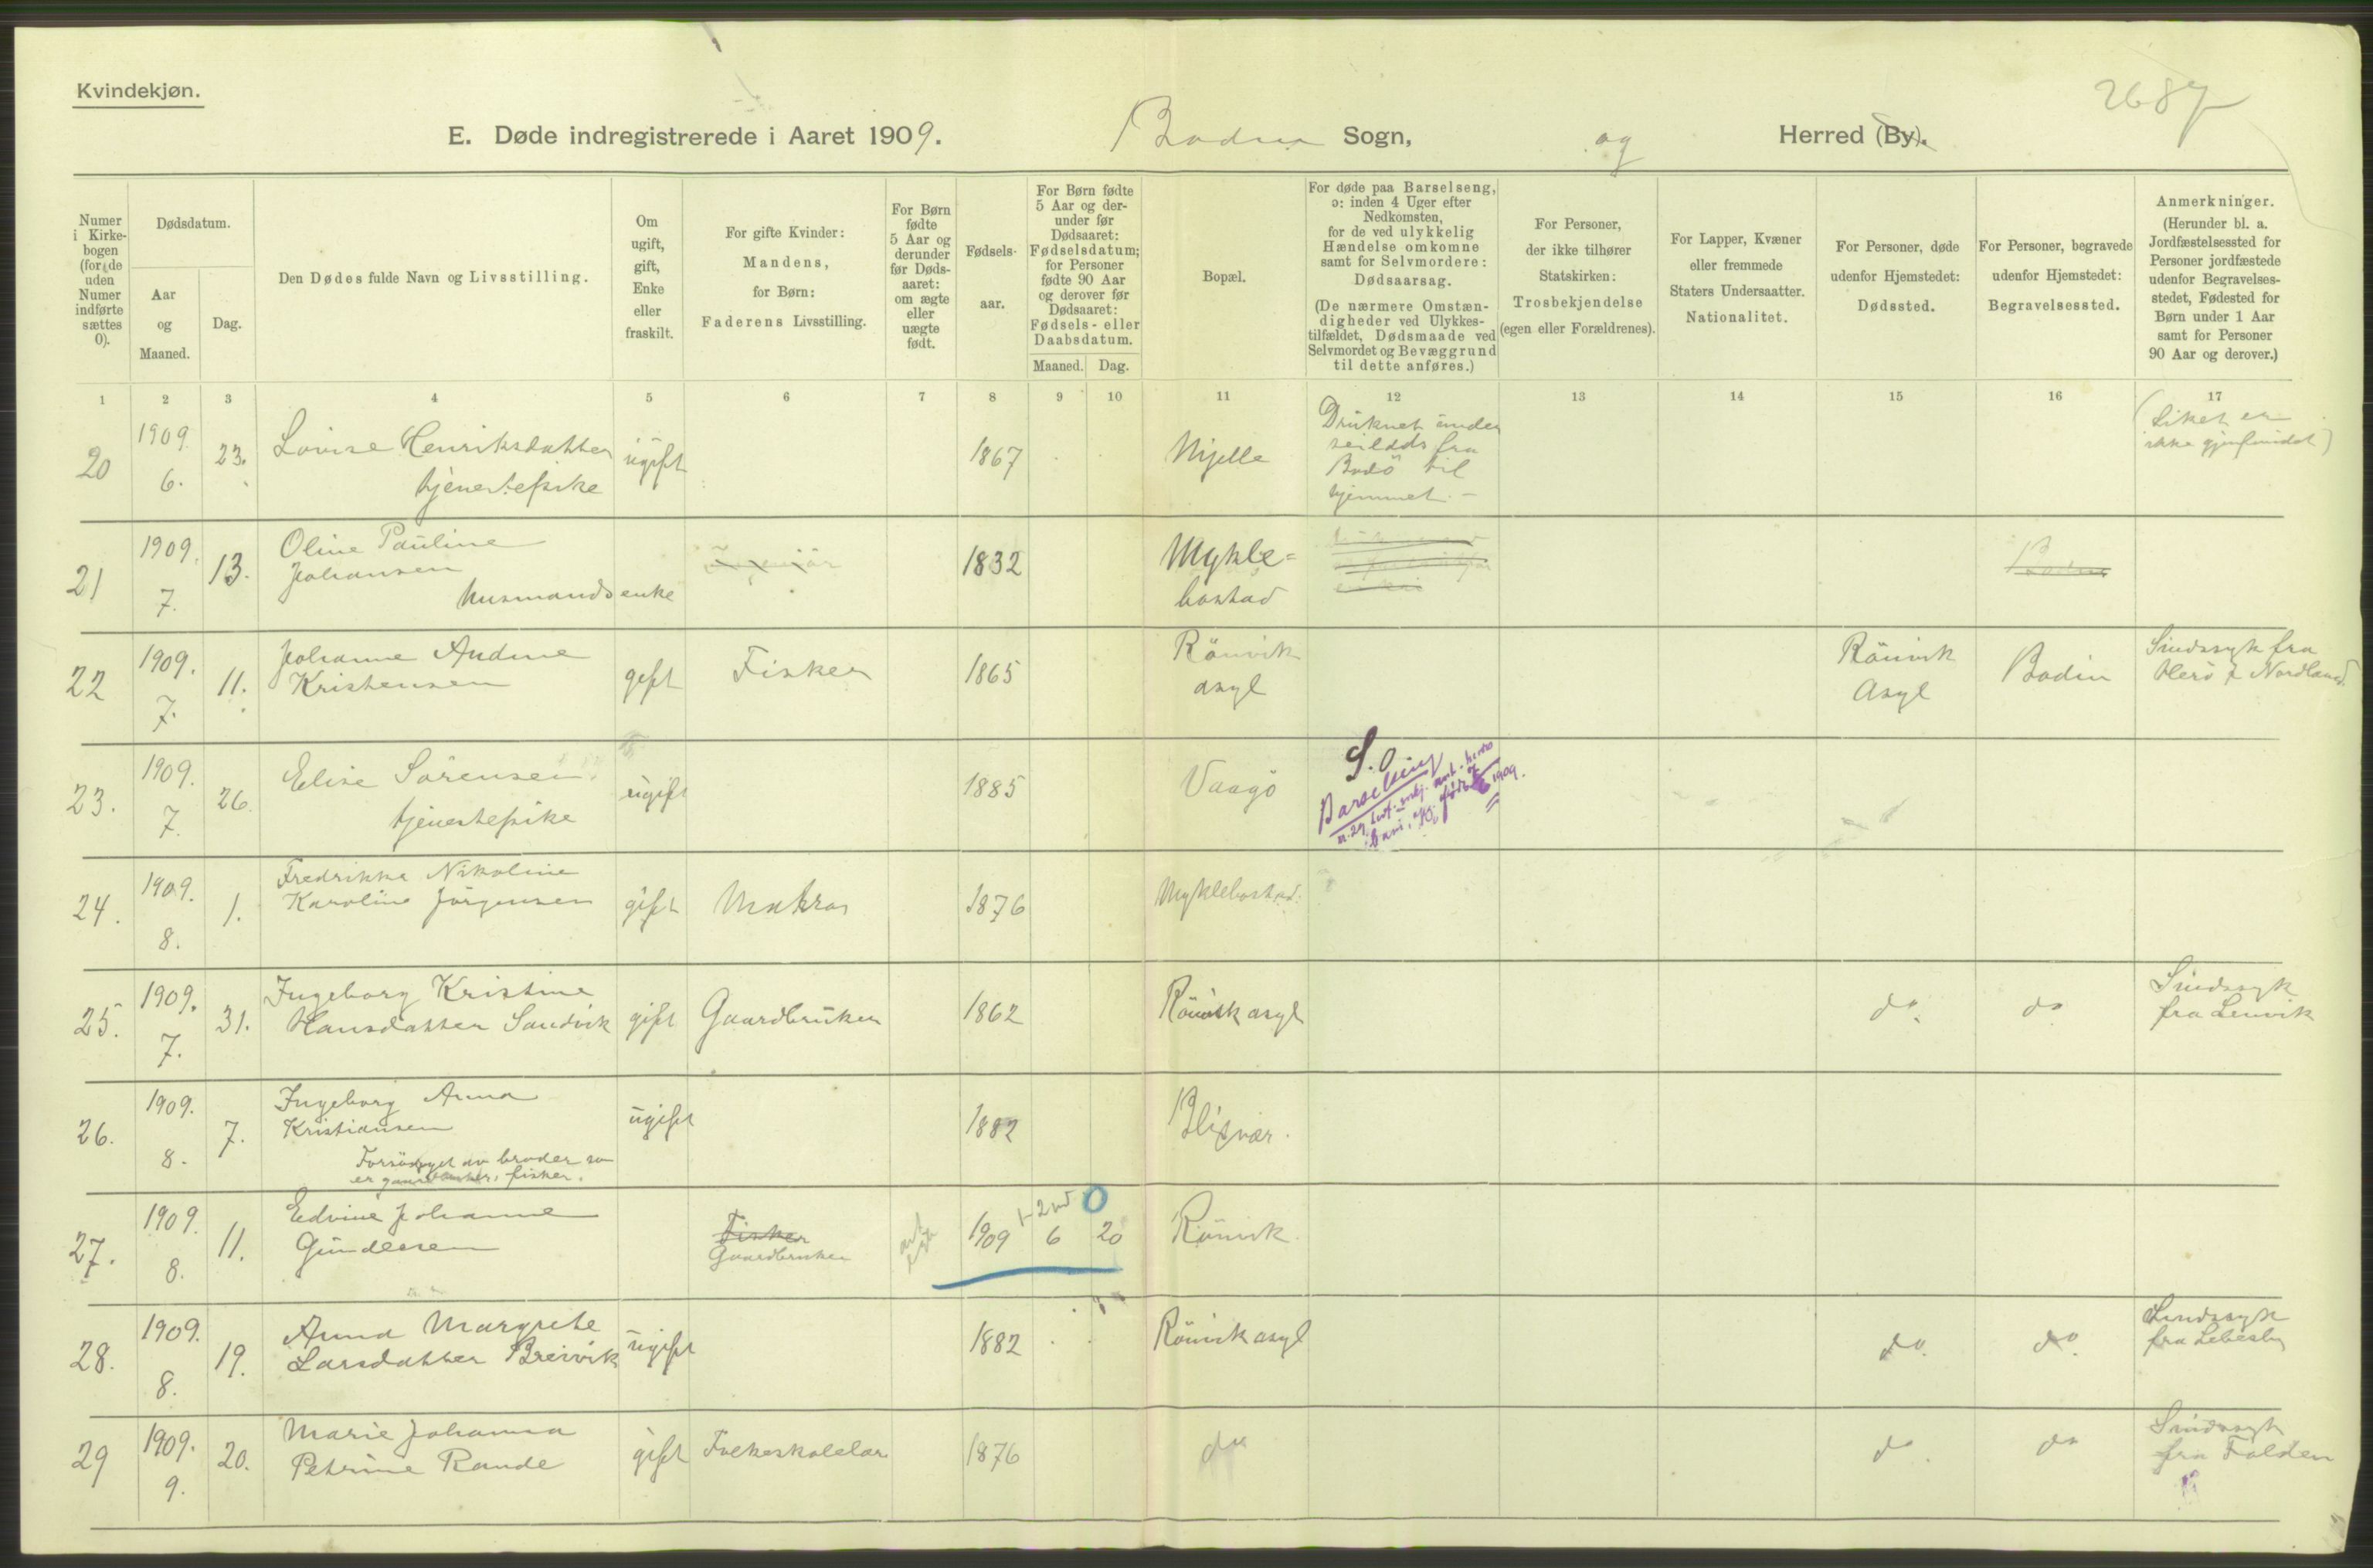 Kvindekjøn.
2687
E. Døde indregistrerede i Aaret 1909. Bodin Sogn, og Herred (By).
Numer
i Kirke-
bogen
(for de
uden
Numer
indførte
sættes
0).
Dødsdatum.
Aar
og
Maaned.
Dag.
Den Dødes fulde Navn og Livsstilling.
Om
ugift,
gift,
Enke
eller
fraskilt.
For gifte Kvinder:
Mandens,
for Børn:
Faderens Livsstilling.
For Børn
fødte
5 Aar og
derunder
før Døds-
aaret:
om ægte
eller
uægte
født.
Fødsels-
aar.
For Børn fødte
5 Aar og der-
under før
Dødsaaret:
Fødselsdatum;
for Personer
fødte 90 Aar
og derover før
Dødsaaret:
Fødsels- eller
Daabsdatum.
Maaned. Dag.
Bopæl.
For døde paa Barselseng,
ɔ: inden 4 Uger efter
Nedkomsten,
for de ved ulykkelig
Hændelse omkomne
samt for Selvmordere:
Dødsaarsag.
(De nærmere Omstæn-
digheder ved Ulykkes-
tilfældet, Dødsmaade ved
Selvmordet og Bevæggrund
til dette anføres.)
For Personer,
der ikke tilhører
Statskirken:
Trosbekjendelse
(egen eller Forældrenes).
For Lapper, Kvæner
eller fremmede
Staters Undersaatter.
Nationalitet.
For Personer, døde
udenfor Hjemstedet:
Dødssted.
For Personer, begravede
udenfor Hjemstedet:
Begravelsessted.
Anmerkninger.
(Herunder bl. a.
Jordfæstelsessted for
Personer jordfæstede
udenfor Begravelses-
stedet, Fødested for
Børn under 1 Aar
samt for Personer
90 Aar og derover.)
1 2 3 4 5 6 7 8 9 10 11 12 13 14 15 16 17
20
1909
6.
23.
Lovise Henriksdatter
tjenestepike
ugift
1867
Mjelle
Druknet under
seilads fra
Bodö til
hjemmet. -
(Liket er
ikke gjenfundet)
21
1909.
7.
13.
Oline Pauline
Johansen
husmandsenke
1832
Mykle=
bostad
Bodin
22
1909.
7.
11.
Johanne Andine
Kristensen
gift
Fisker
1865
Rönvik
asyl
Rönvik
Asyl
Bodin
Sindssyk fra
Herö i Nordland
23.
1909.
7.
26.
Elise Sörensen
tjenestepike
ugift
1885
Vaagö
S.O
Barselseng
1909.
24.
1909.
8.
1.
Fredrikke Nikoline
Karoline Jörgensen
gift
Matros
1876
Myklebostad.
25.
1909.
7.
31.
Ingeborg Kristine
Hansdatter Sandvik
gift
Gaardbruker
1862
Rönvik asyl
do.
do
Sindssyk
fra Lenvik
26.
1909.
8.
7.
Ingeborg Anna
Kristiansen
Forsörget av broder som
er gaardbruker, fisker.
ugift
1882
Blixvær.
27.
1909.
8.
11.
Edvine Johanne
Gundersen
Fisker
Gaardbruker
1909 6 20
0
Rönvik
28.
1909.
8.
19.
Anna Margrete
Larsdatter Breivik
ugift
1882
Rönvik asyl
do.
do.
Sindssyk
fra Lebesby
29
1909.
9.
20.
Marie Johanna
Petrine Rande
gift
Folkeskolelær
1876
do
do.
do
Sindssyk
fra Folden